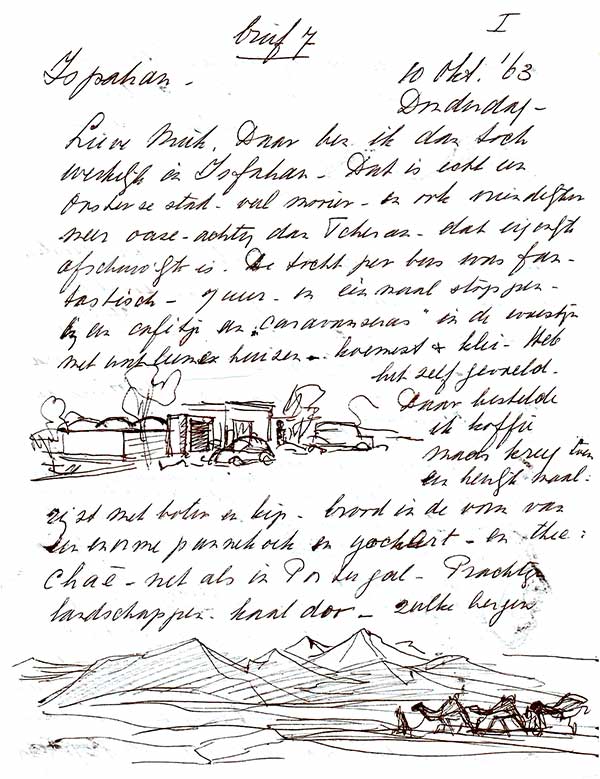 brief 7
I
Ispahan -
10 Okt. '63
Donderdag -
Lieve Mich, Daar ben ik dan toch
werkelijk in Isfahan - Dat is echt een
Oosterse stad - vol mooier - en ook
meer oase-achtig dan Teheran - dat
afschuwelijk is. De tocht per bus was fan-
tastisch - 7 uur - en éénmaal stoppen -
bij een cafétje en "caravanserai" in de woestijn
met huizen - koemest & klei - Heb
het zelf gevoeld.
Daar bestelde
ik koffie
maar kreeg toen
een heugl. maal-
tijd met boter en kip - brood in de vorm van
een enorme pannekoek en yochurt - en thee:
Chaë - net als in Portugal - Prachtige
landschappen - kaal door - zulke bergen